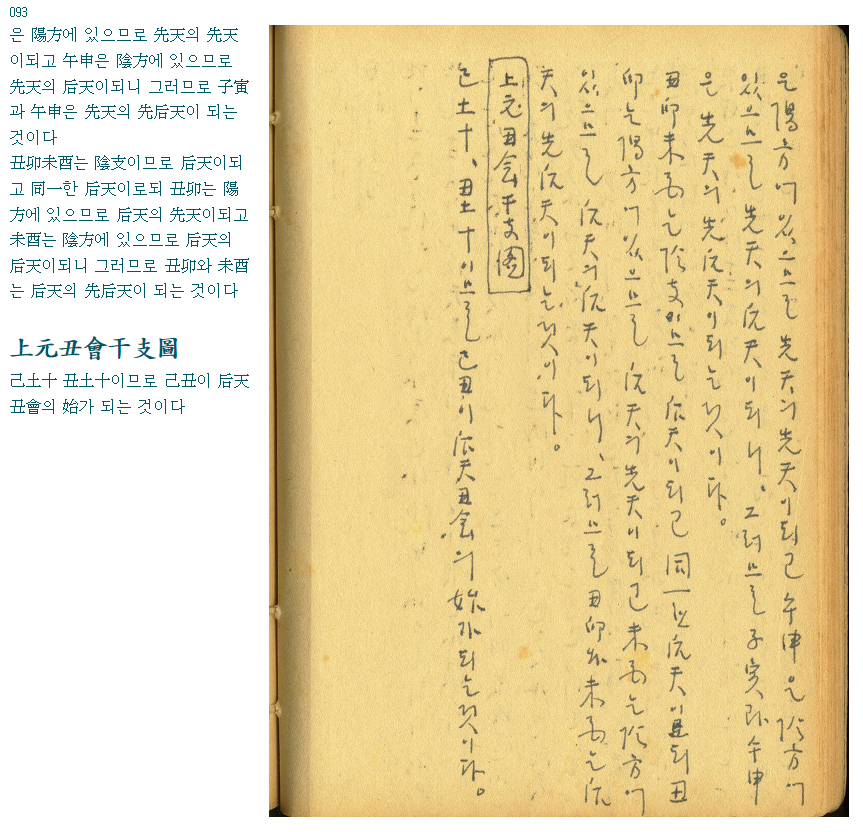 093
은 陽方에 있으므로 先天의 先天
이되고 午申은 陰方에 있으므로
先天의 后天이되니 그러므로 子寅
과 午申은 先天의 先后天이 되는
것이다
丑卯未酉는 陰支이므로 后天이되
고 同一한 后天이로되 丑卯는 陽
方에 있으므로 后天의 先天이되고
未酉는 陰方에 있으므로 后天의
后天이되니 그러므로 丑卯와 未酉
는 后天의 先后天이 되는 것이다
上元丑會干支圖
己土十 丑土十이므로 己丑이 后天
丑會의 始가 되는 것이다
은 陽方에 있으므로 先天의 先天이되고 午申은 陰方에
있으므로 先天의 后天이되니、그러므로 子寅과 午申
은 先天의 先后天이되는것이다。
丑卯未酉는 陰支이므로 后天이되고 同一한 后天이로되 丑
卯는 陽方에 있으므로 后天의 先天이되고 未酉는 陰方에
있으므로 后天의 后天이되니、그러므로 丑卯와 未酉는 后
天의 先后天이되는것이다。
上元丑会干支圖
己土十、丑土十이므로 己丑이 后天丑会의 始가되는것이다。